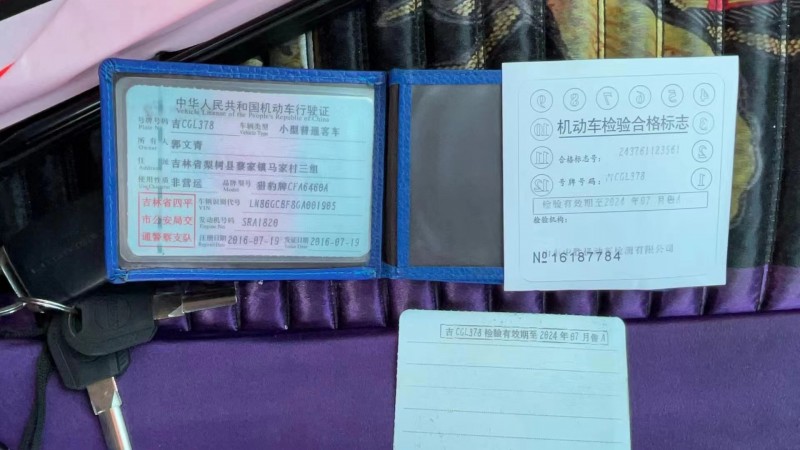 中华人民共和国机动车行驶证
Vehicle License of the People's Republic of China
号牌号码 吉CGL378 车辆类型 小型普通客车
Plate No. Vehicle Type
所有人 郭文青
Owner
住址 吉林省梨树县蔡家镇马家村三组
Address
使用性质 非营运 品牌型号 猎豹牌CFA6460A
Use Character Model
吉林省四平
市公安局交
通警察支队
车辆识别代号
VIN
发动机号码 SRA1820
Engine No.
注册日期 2016-07-19 发证日期 2016-07-19
Register Date Issue Date
9 8 7 6 5 4
10 机动车检验合格标志 3
11 合格标志号: 2
12 号牌号码: 1
检验有效期至2024年07月吉A
检验机构:
检测有限公司
№16187784
吉CGL378检验有效期至2024年07月吉A